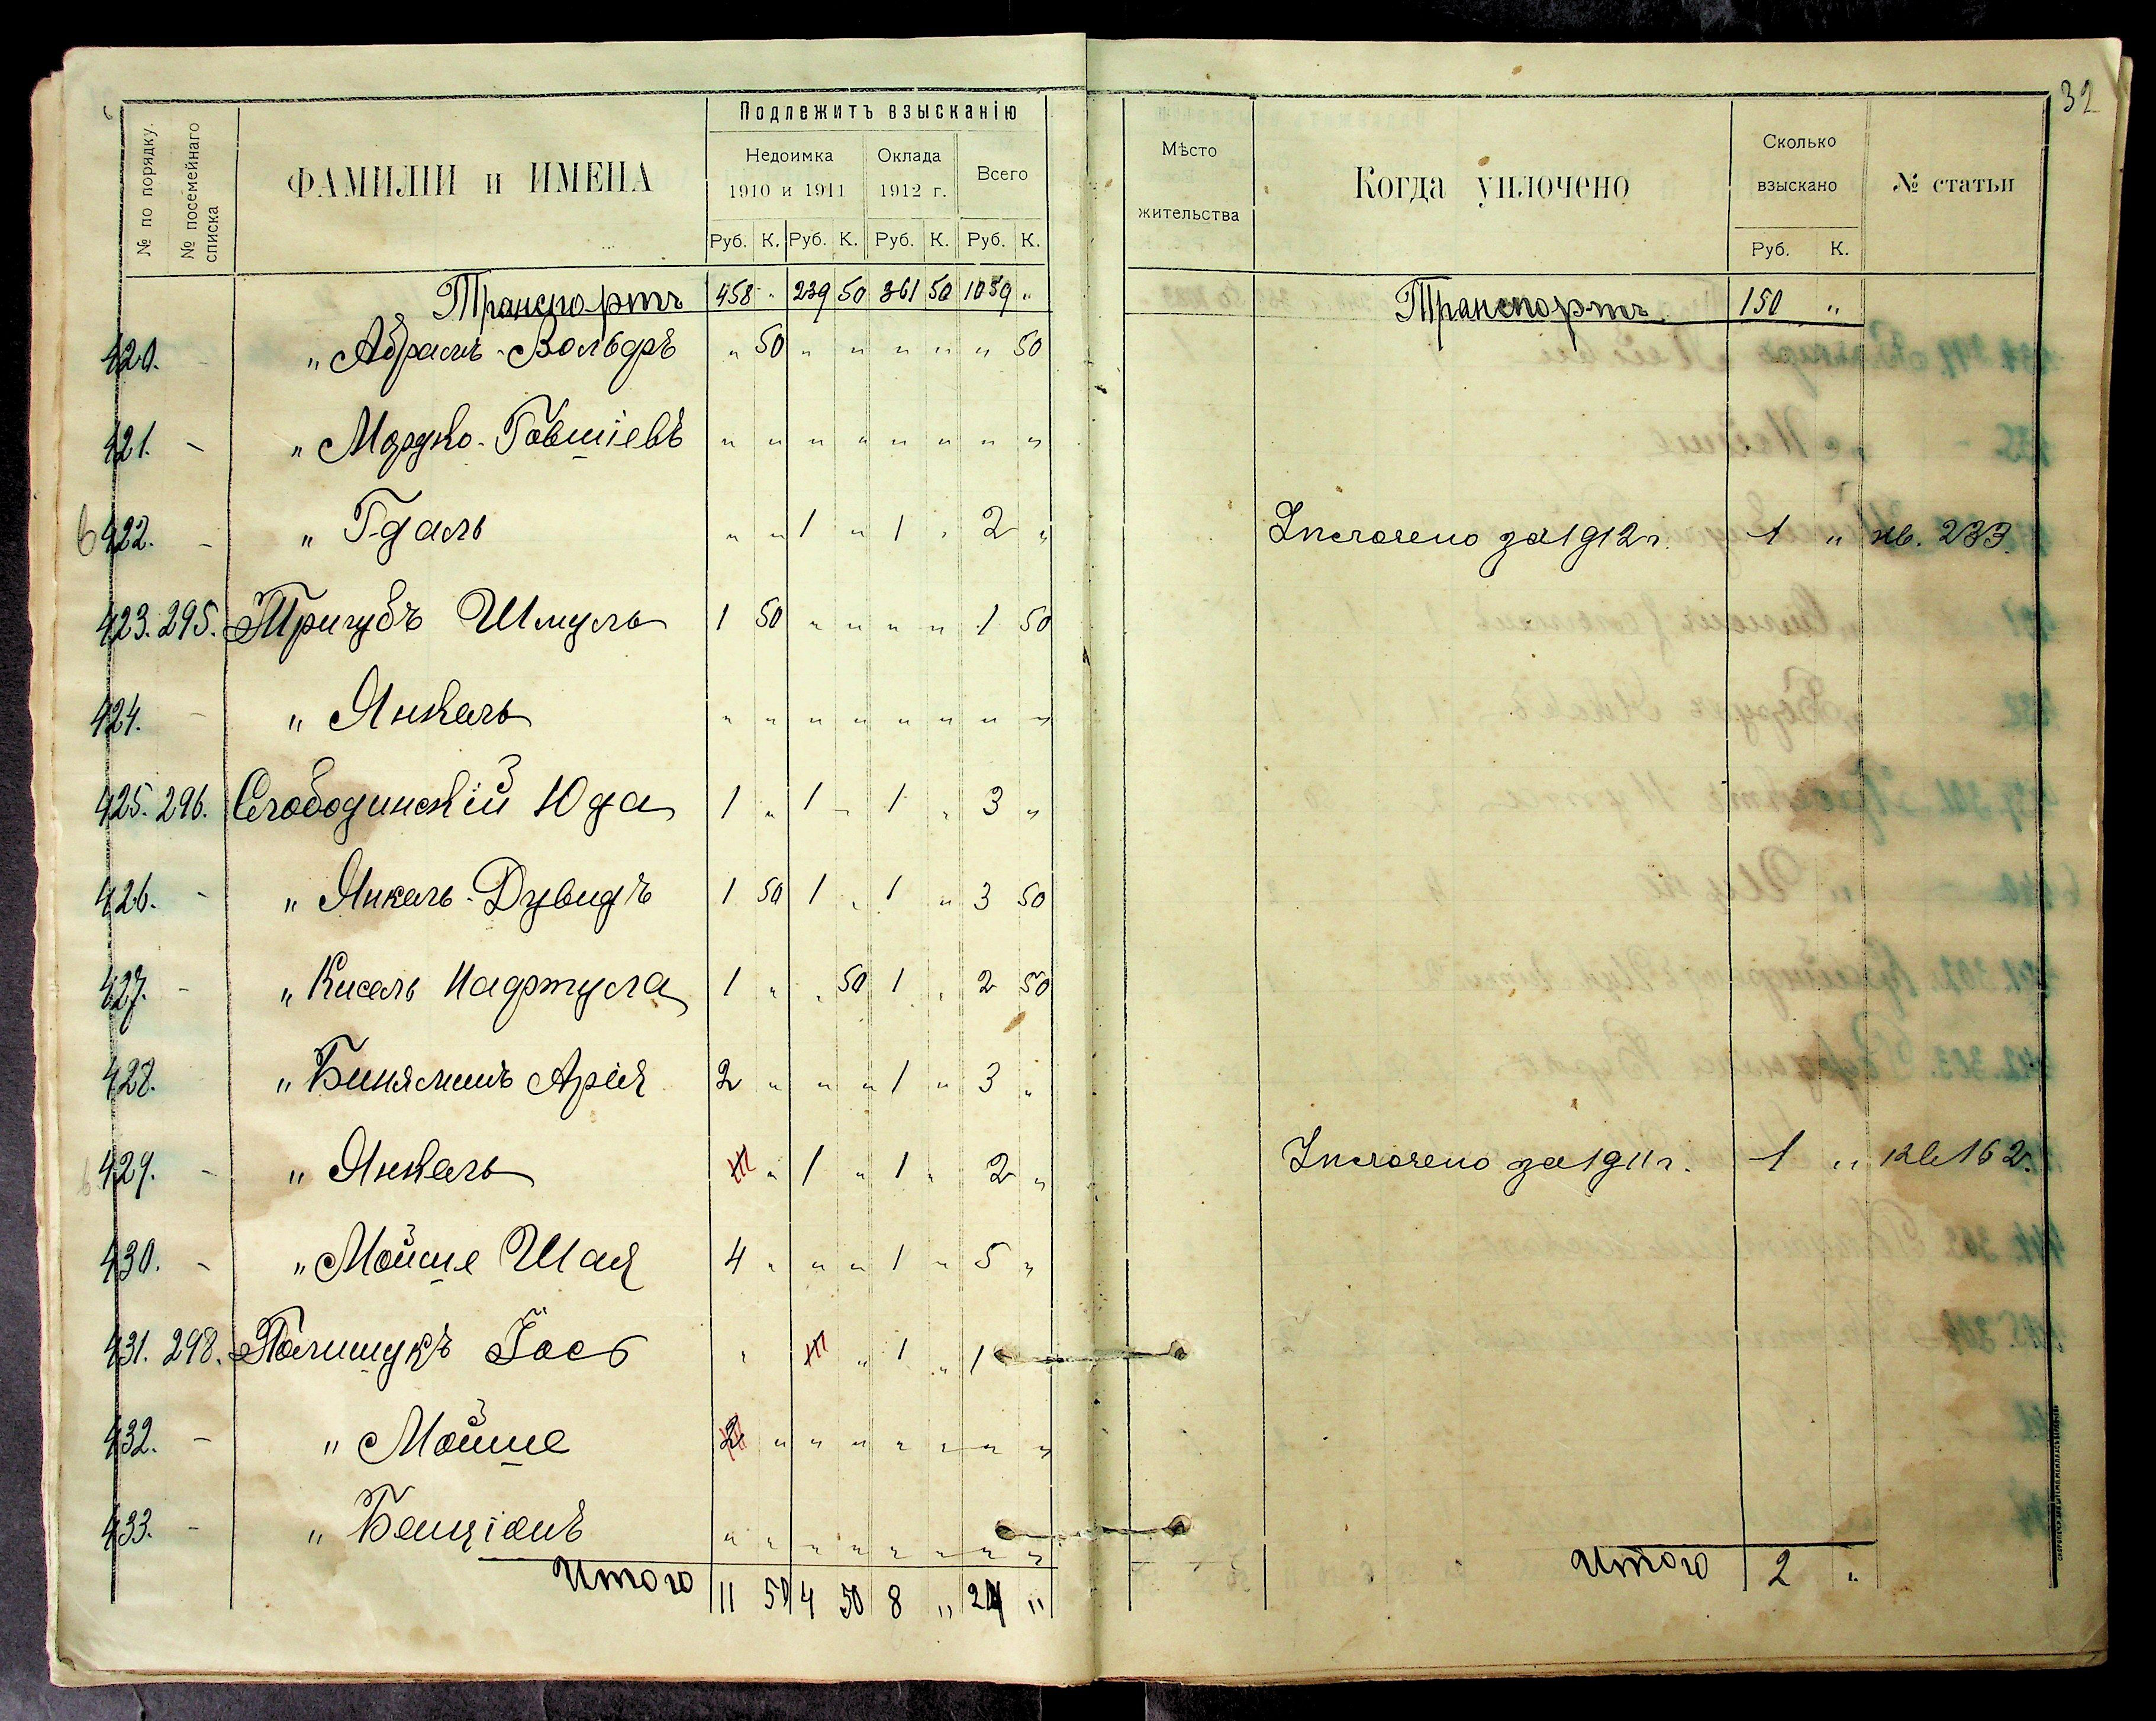 32
№ по порядку.
№ посемейнаго списка
ФАМИЛІИ и ИМЕНА
Подлежитъ взысканію
Недоимка 1910 и 1911
Оклада 1912 г.
Всего
Руб. К. Руб. К. Руб. К. Руб. К.
Мѣсто жительства
Когда уплочено
Сколько взыскано
Руб. К.
№ статьи
Транспортъ 458 " 239 50 361 50 1059 " Транспортъ 150 "
420. - " Абрамъ-Вольфъ " 50 " " " " " 50
421. - " Мордко-Говшіевъ " " " " " " " "
422. - " Гдаль " " 1 " 1 " 2 " Уплочено за 1912 г. 1 " кв. 233.
423. 295. Тригубъ Шмуль 1 50 " " " " 1 50
424. - " Янкель " " " " " " " "
425. 296. Слободинскій Юда 1 " 1 " 1 " 3 "
426. - " Янкель-Дувидъ 1 50 1 " 1 " 3 50
427. - " Кисель Нафтула 1 " " 50 1 " 2 50
428. " Биняминъ Арія 2 " " " 1 " 3 "
429. - " Янкель " 1 " 1 " 2 " Уплочено за 1911 г. 1 " кв 162.
430. - " Мойше Шая 4 " " " 1 " 5 "
431. 298. Полищукъ Іось " " 1 " 1
432. - " Мойше 2 " " " " " " "
433. - " Бенціонъ " " " " " " " "
Итого 11 50 4 50 8 " 24 " Итого 2 "